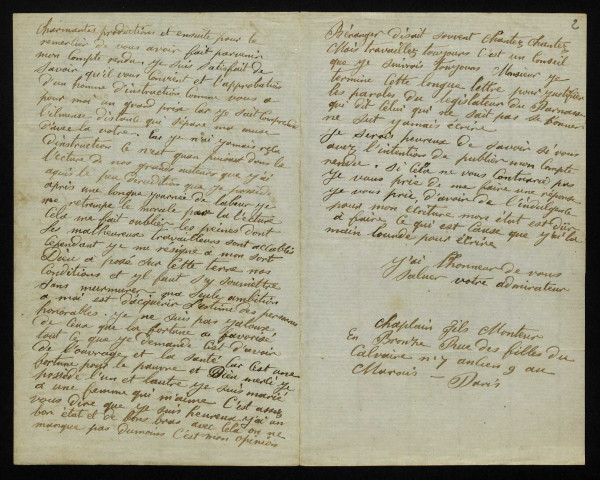 charmantes productions et ensuite pour le
remercier de vous avoir fait parvenir
mon compte rendu. je suis satisfait de
savoir qu'il vous convient et l'approbation
d'un homme d'instruction comme vous a
pour moi un grand prix car je sait comprendre
l'immense distance qui sépare ma muse
d'avec la votre. Car je n'ai jamais reçu
d'instruction ce n'est quen puisant dans la
lecture de nos grands auteurs que j'ai
aquis le peu d'erudition que je possede
après une longue journée de labeur je
me retrempe le morale par la lecture
cela me fait oublier les peines dont
les malheureux travailleurs sont accablés
Cependant je me résigne a mon sort
Dieu a posé sur cette terre nos
conditions et il faut s'y soumettre
sans murmurer. ma seule ambition
a moi est d'acquérir l'estime des personnes
honorables. je ne suis pas jaloux
de ceux que la fortune a favorisé
tout ce que je demande c'est d'avoir
de l'ouvrage et la santé car c'est une
fortune pour le pauvre et Dieu merci je
possède l'un et l'autre je suis marié
a une femme qui m'aime C'est assez
vous dire que je suis heureux j'ai un
bon état et de bons bras avec cela on ne
manque pas du moins c'est mon opinion
2
Béranger disait souvent chantez chantez
Mais travaillez toujours C'est un conseil
que je suivrais toujours Monsieur je
termine cette longue lettre pour justifier
les paroles du législateur du Parnasse
qui dit Celui qui ne sait pas se borner
ne sut jamais écrire
je serais heureux de savoir si vous
avez l'intention de publier mon compte
rendu. Si cela ne vous contrarie pas
je vous prie de me faire une réponse
je vous prie, d'avoir de l'indulgence
pour mon écriture mon état est dur
a faire ce qui est cause que j'ai la
main lourde pour écrire
j'ai l'honneur de vous
saluer votre admirateur
Chaplain fils Monteur
En Bronze Rue des filles du
Calvaire n° 7 ancien 9 au
Marais — Paris